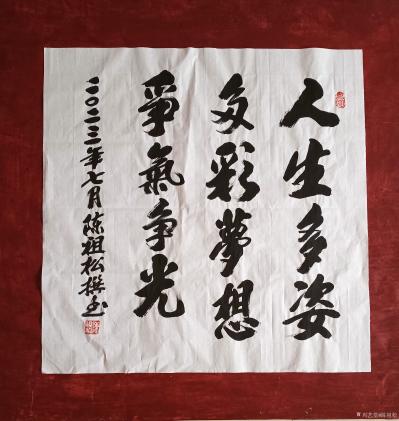 人生多姿
多彩夢想
爭氣争光
二〇二三年七月陈祖松撰书